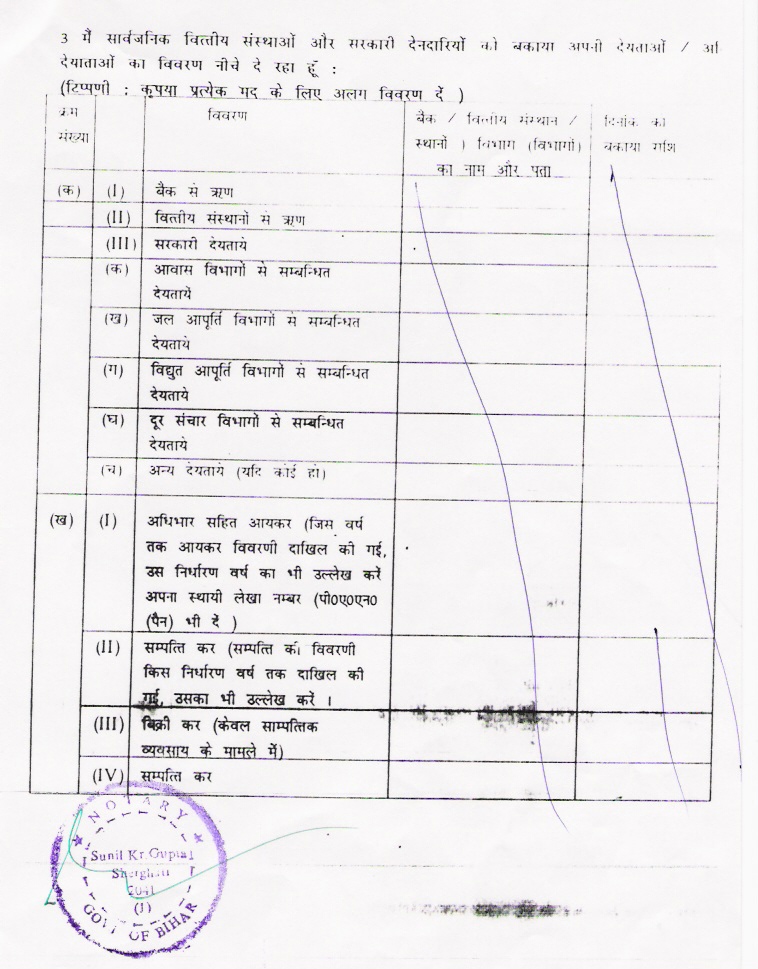 3 मैं सार्वजनिक वित्तीय संस्थाओं और सरकारी देनदारियों को बकाया अपनी देयताओं /
देयाताओं का विवरण नीचे दे रहा हूँ :
(टिप्पणी : कृपया प्रत्येक मद के लिए अलग विवरण दें )
क्रम
संख्या
विवरण
बैंक / वित्तीय संस्थान /
स्थानों । विभाग (विभागों)
का नाम और पता
दिनांक का
बकाया राशि
(क) (I) बैंक से ऋण
(II) वित्तीय संस्थानों से ऋण
(III) सरकारी देयताये
(क) आवास विभागों से सम्बन्धित
देयतायें
(ख) जल आपूर्ति विभागों से सम्बन्धित
देयतायें
(ग) विद्युत आपूर्ति विभागों से सम्बन्धित
देयताये
(घ) दूर संचार विभागों से सम्बन्धित
देयताये
(च) अन्य देयताये (यदि कोई हो)
(ख) (I) अधिभार सहित आयकर (जिस वर्ष
तक आयकर विवरणी दाखिल की गई,
उस निर्धारण वर्ष का भी उल्लेख करें
अपना स्थायी लेखा नम्बर (पी0ए0एन0
(पैन) भी दें )
(II) सम्पत्ति कर (सम्पत्ति की विवरणी
किस निर्धारण वर्ष तक दाखिल की
गई, उसका भी उल्लेख करें ।
(III) बिक्री कर (केवल साम्पत्तिक
व्यवसाय के मामले में)
(IV) सम्पत्ति कर
NOTARY
Sunil Kr. Gupta
Sherghati
(J)
GOVT OF BIHAR